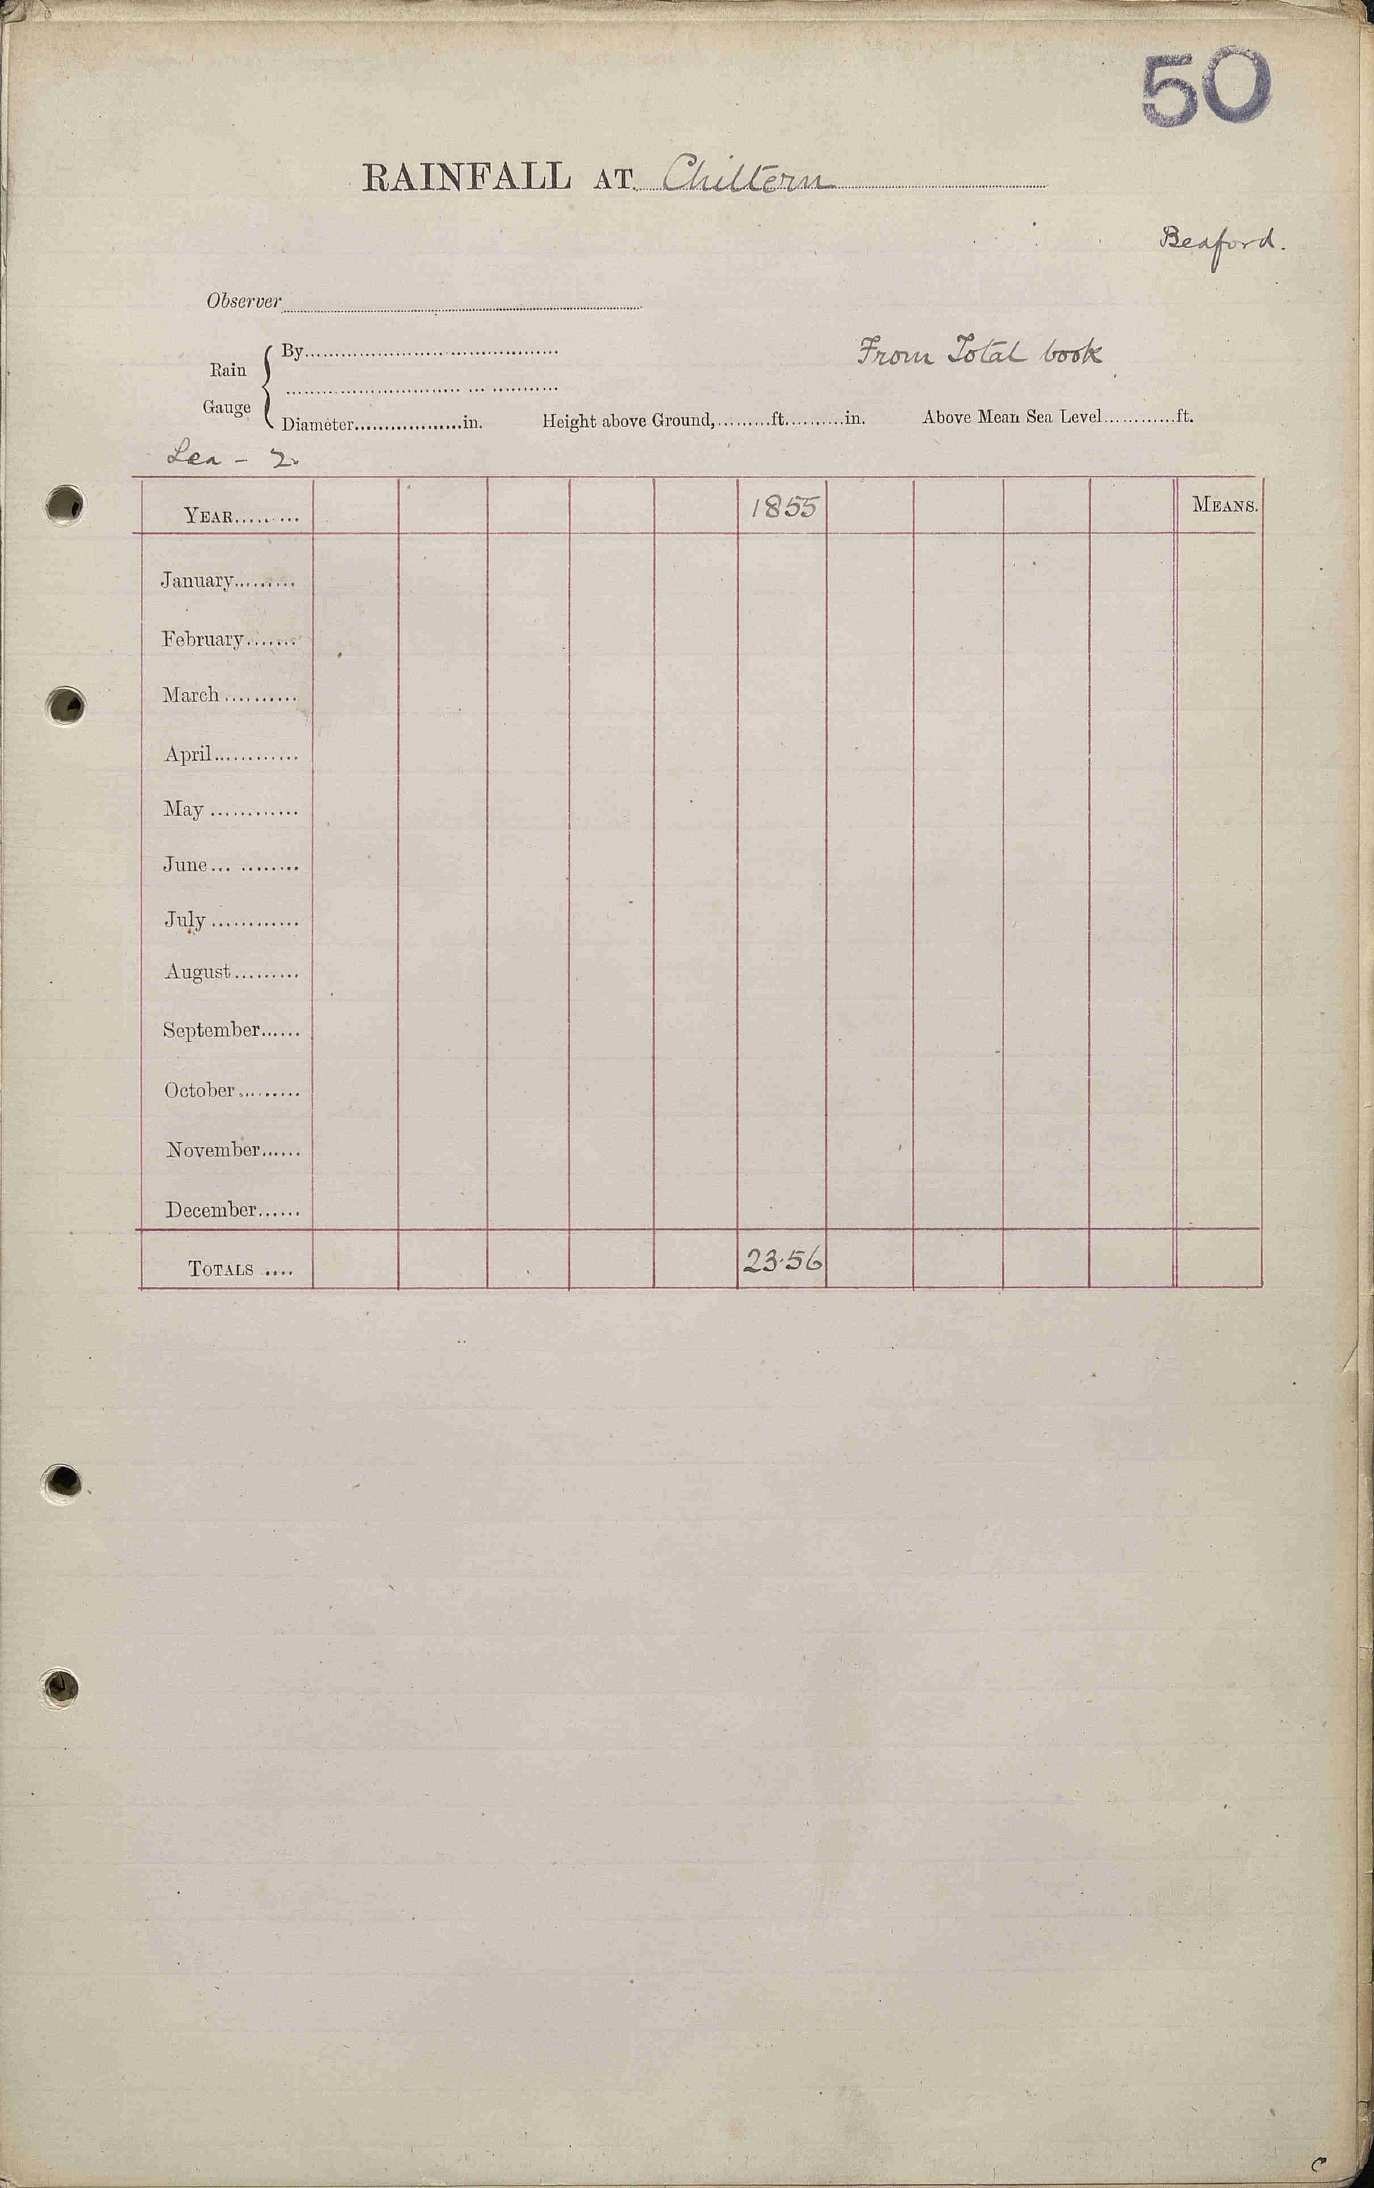 50
RAINFALL AT Chiltern
Bedford.
Observer
Rain Gauge
By
From Total book
Diameter in. Height above Ground, ft. in. Above Mean Sea Level ft.
Lea - 2.
YEAR 1855 MEANS.
January
February
March
April
May
June
July
August
September
October
November
December
TOTALS 23.56